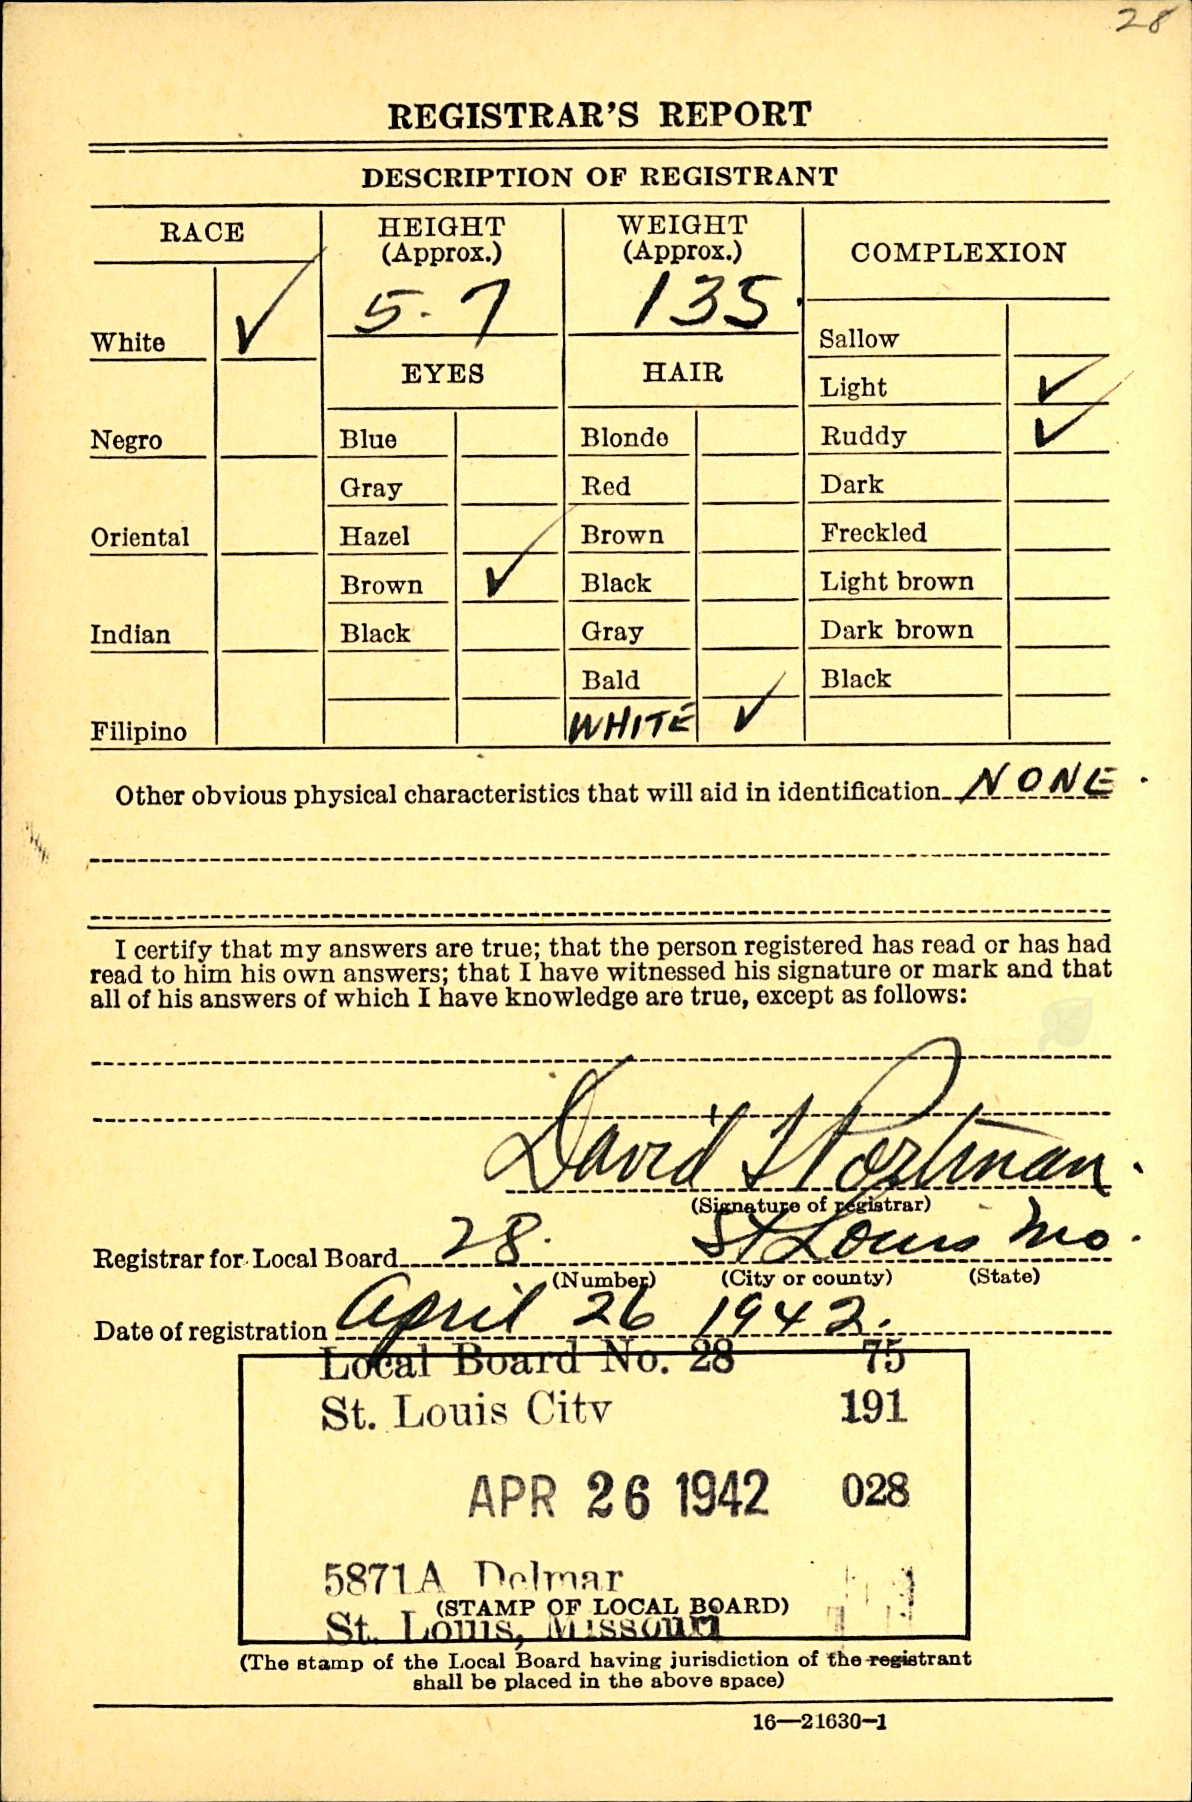 28
REGISTRAR'S REPORT
DESCRIPTION OF REGISTRANT
RACE
HEIGHT
(Approx.)
WEIGHT
(Approx.)
COMPLEXION
5-7
135
White ✓
Negro
Oriental
Indian
Filipino
EYES
Blue
Gray
Hazel
Brown ✓
Black
HAIR
Blonde
Red
Brown
Black
Gray
Bald
WHITE ✓
Sallow
Light ✓
Ruddy ✓
Dark
Freckled
Light brown
Dark brown
Black
Other obvious physical characteristics that will aid in identification NONE.
I certify that my answers are true; that the person registered has read or has had
read to him his own answers; that I have witnessed his signature or mark and that
all of his answers of which I have knowledge are true, except as follows:
David Portman
(Signature of registrar)
Registrar for Local Board 28. St Louis Mo.
(Number) (City or county) (State)
Date of registration April 26 1942.
Local Board No. 28 75
St. Louis City 191
APR 26 1942 028
5871A Delmar
(STAMP OF LOCAL BOARD)
St. Louis, Missouri
(The stamp of the Local Board having jurisdiction of the registrant
shall be placed in the above space)
16—21630-1